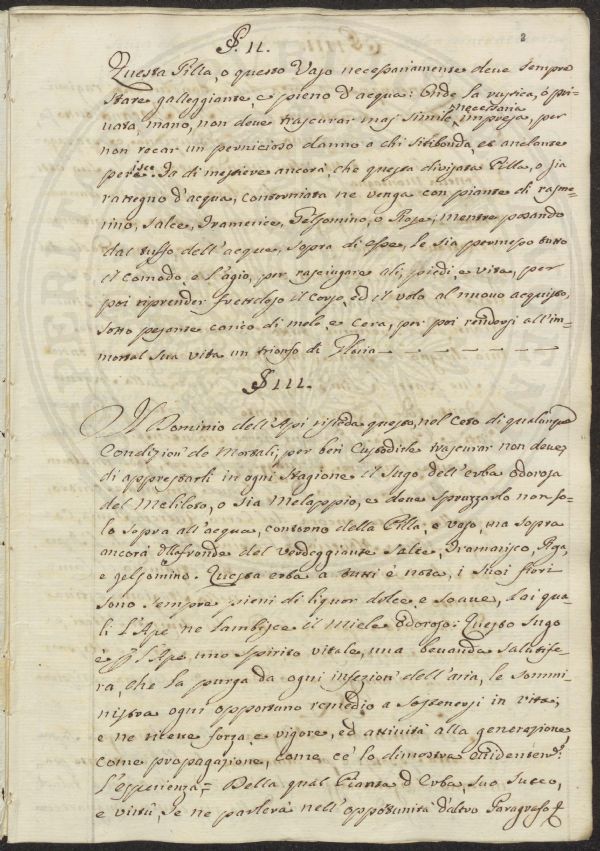 2
§. II.
Questa Pilla, o questo Vaso necessariamente deve sempre
stare galleggiante, e pieno d'acqua: Onde la rustica, o pri-
vata, mano, non deve trascurar mai simile necessaria impresa, per
non recar un pernicioso danno a chi sitibonda, et anelante
perisce. Fa di mestieve ancora, che questa divisata Pilla, o sia
rattegno d'acqua, contorniata ne venga con piante di rasme-
rino, Salce, Tramerice, Gelsomino, o Rose; mentre posando
dal tuffo dell'acque, sopra di esse, le sia permesso tutto
il comodo, e l'agio, per rasciugare ali, piedi, e vita, per
poi riprender frettoloso il Corso, ed il volo al nuovo acquisto,
sotto pesante carico di mele, e Cera, per poi rendersi all'im-
mortal sua vita un trionfo di Gloria
§ III.
Il Dominio dell'Api risieda questo, nel Ceto di qualunque
Condizion' de Mortali, per ben Custodirle trascurar non deve,
di appresstarli in ogni Stagione il Sugo dell'erba odorosa
del Meliloto, o sia Melappio, e deve Spruzzarlo non so-
lo sopra all'acqua, contorno della Pilla, e vaso, ma sopra
ancora alle fronde del verdeggiante Salce, Tramarisco, Rosa,
e gelsomino. Questa erba a tutti è nota, i suoi fiori
sono sempre pieni di liquor dolce, e soave, dai qua-
li l'Ape ne lambisce il miele odoroso: Questo Sugo
è p l'Ape uno spirito vitale, una bevanda salutife-
ra, che la purga da ogni infezion' dell'aria, le sommi-
nistra ogni opportuno remedio a sostenersi in vita;
e ne riceve forza, e vigore, ed attività alla generazione,
come propagazione, come ce lo dimostra evidentem.e
l'esperienza = Della qual Pianta d'Erba, suo Succo,
e virtù, se ne parlerà nell'opportunità d'altro Paragrafo